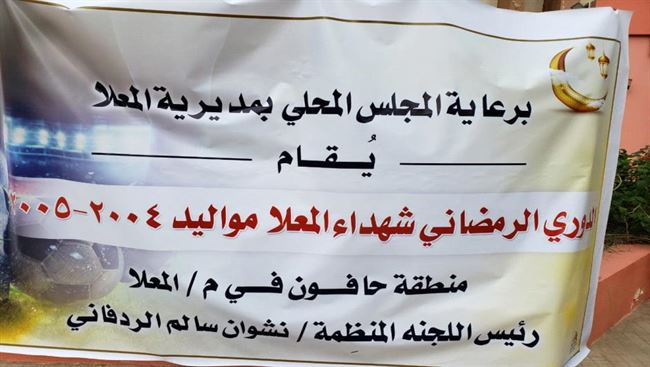 برعاية المجلس المحلي بمديرية المعلا
يُـقـــام
الدوري الرمضاني شهداء المعلا مواليد ٢٠٠٤-٢٠٠٥
منطقة حافون في م/ المعلا
رئيس اللجنه المنظِمة / نشوان سالم الردفاني